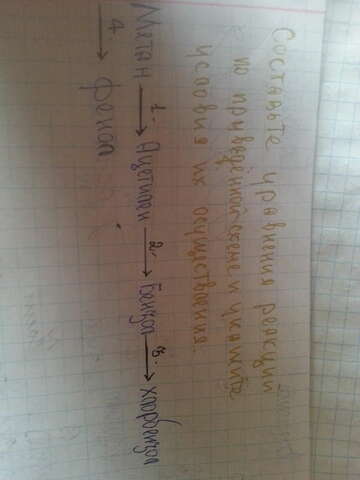 Составьте уравнения реакций
по приведённой схеме и укажите
условия их осуществления.
Метан 1. → Ацетилен 2. → Бензол 3. → хлорбензол
4. → фенол